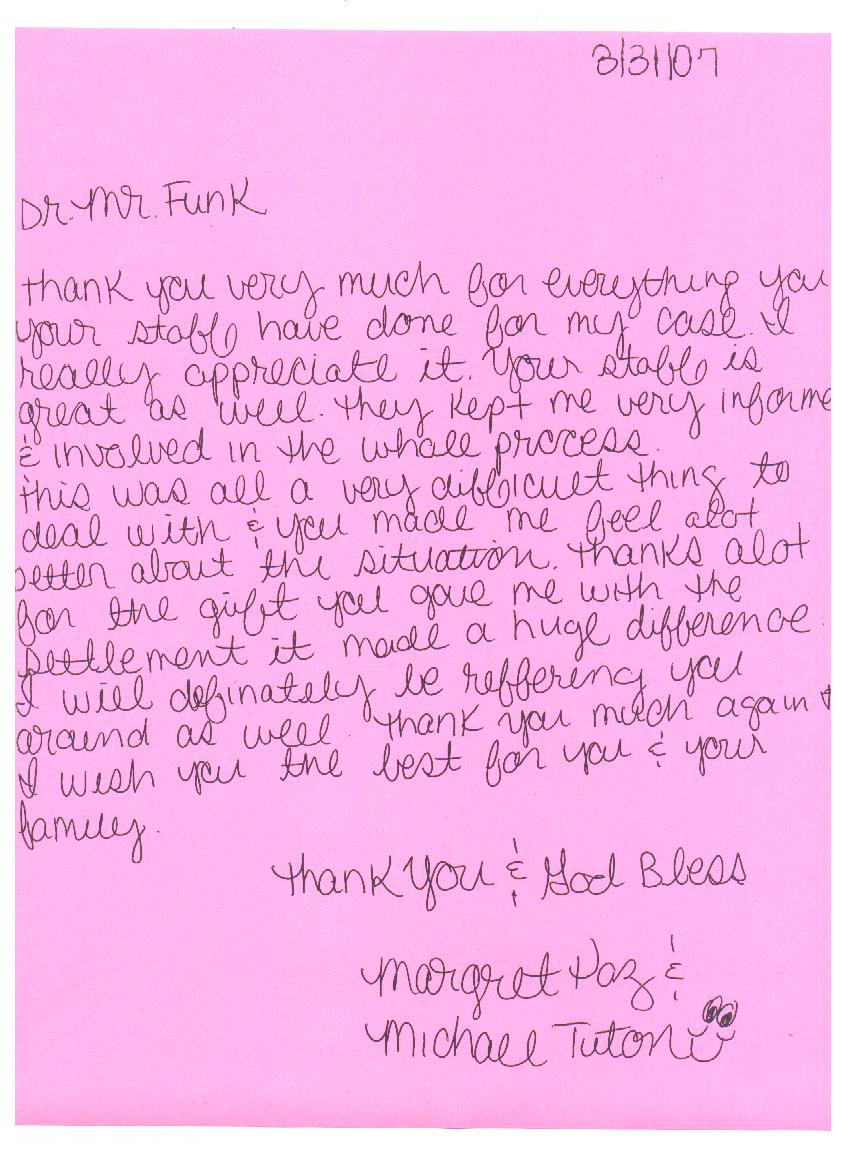 3/31/07
Dr. Mr. Funk
thank you very much for everything you
your staff have done for my case. I
really appreciate it. Your staff is
great as well. they kept me very informe
& involved in the whole process.
this was all a very difficult thing to
deal with & you made me feel alot
better about the situation. thanks alot
for the gift you gave me with the
settlement it made a huge difference.
I will definately be reffering you
around as well thank you much again &
I wish you the best for you & your
family.
thank You & God Bless
Margret Paz &
Michael Tuton